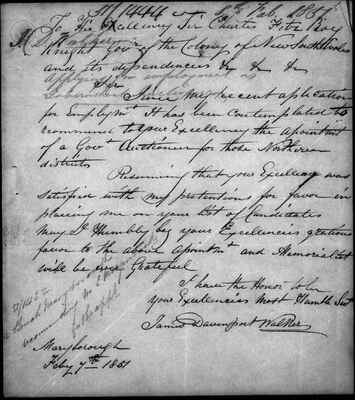 To His Excellency Sir Charles Fitz Roy
Knight Gov of the Colony of New South Wales
and its dependencies & & &
Sir
Since my recent application
for Employmt It has been Contemplated to
recommend to your Excellency the Apointment
of a Govt Auctioneer for those Northern
districts
Presuming that your Excellency was
satisfied with my pretentions for favor in
placing me on your list of Candidates
may I Humbly beg your Excellencies gratious
favor to the above Apointmt and Memorialist
will be ever Grateful
I have the Honor to be
your Excellencies Most Humble Servt
James Davenport Walker
Maryborough
Feby 7th 1851